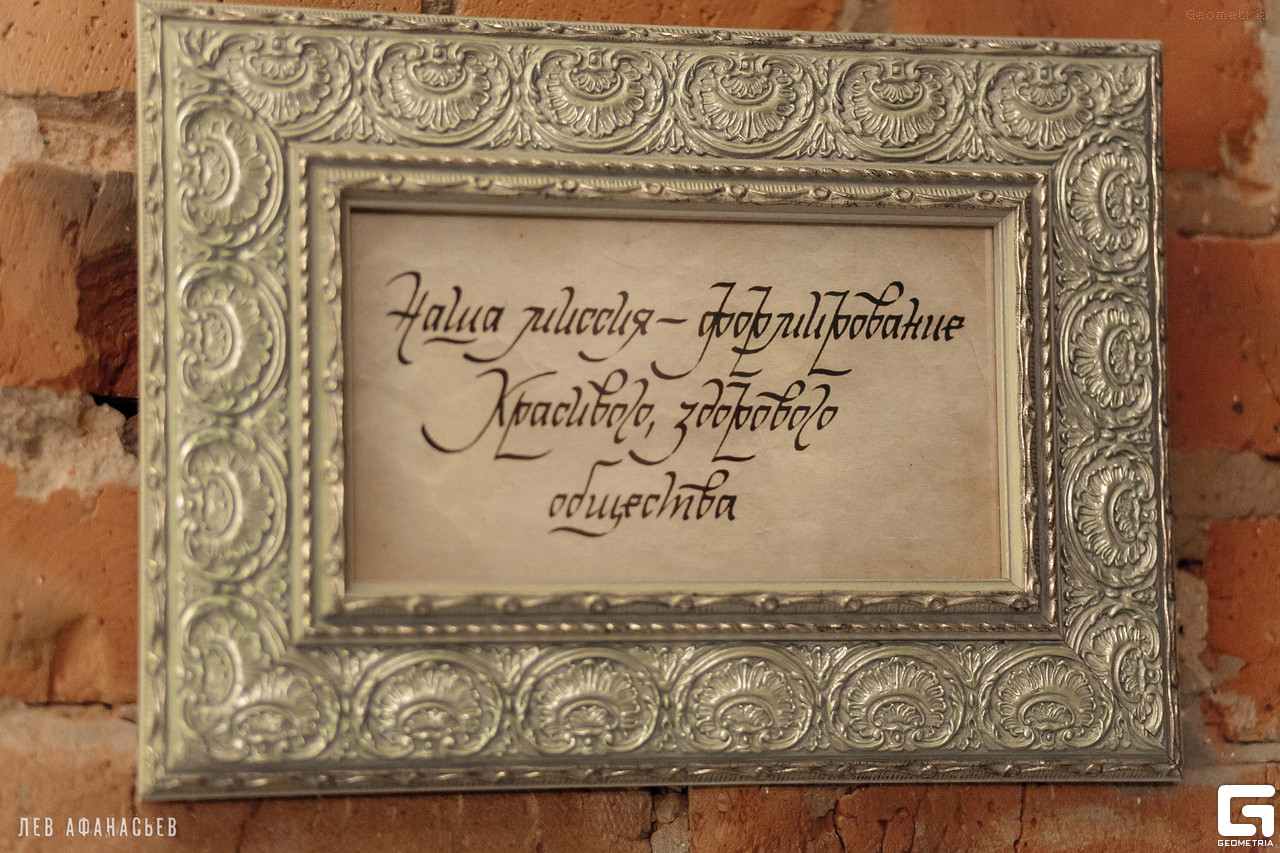 Geometria
Наша миссия — формирование
Красивого, здорового
общества
ЛЕВ АФАНАСЬЕВ
GEOMETRIA